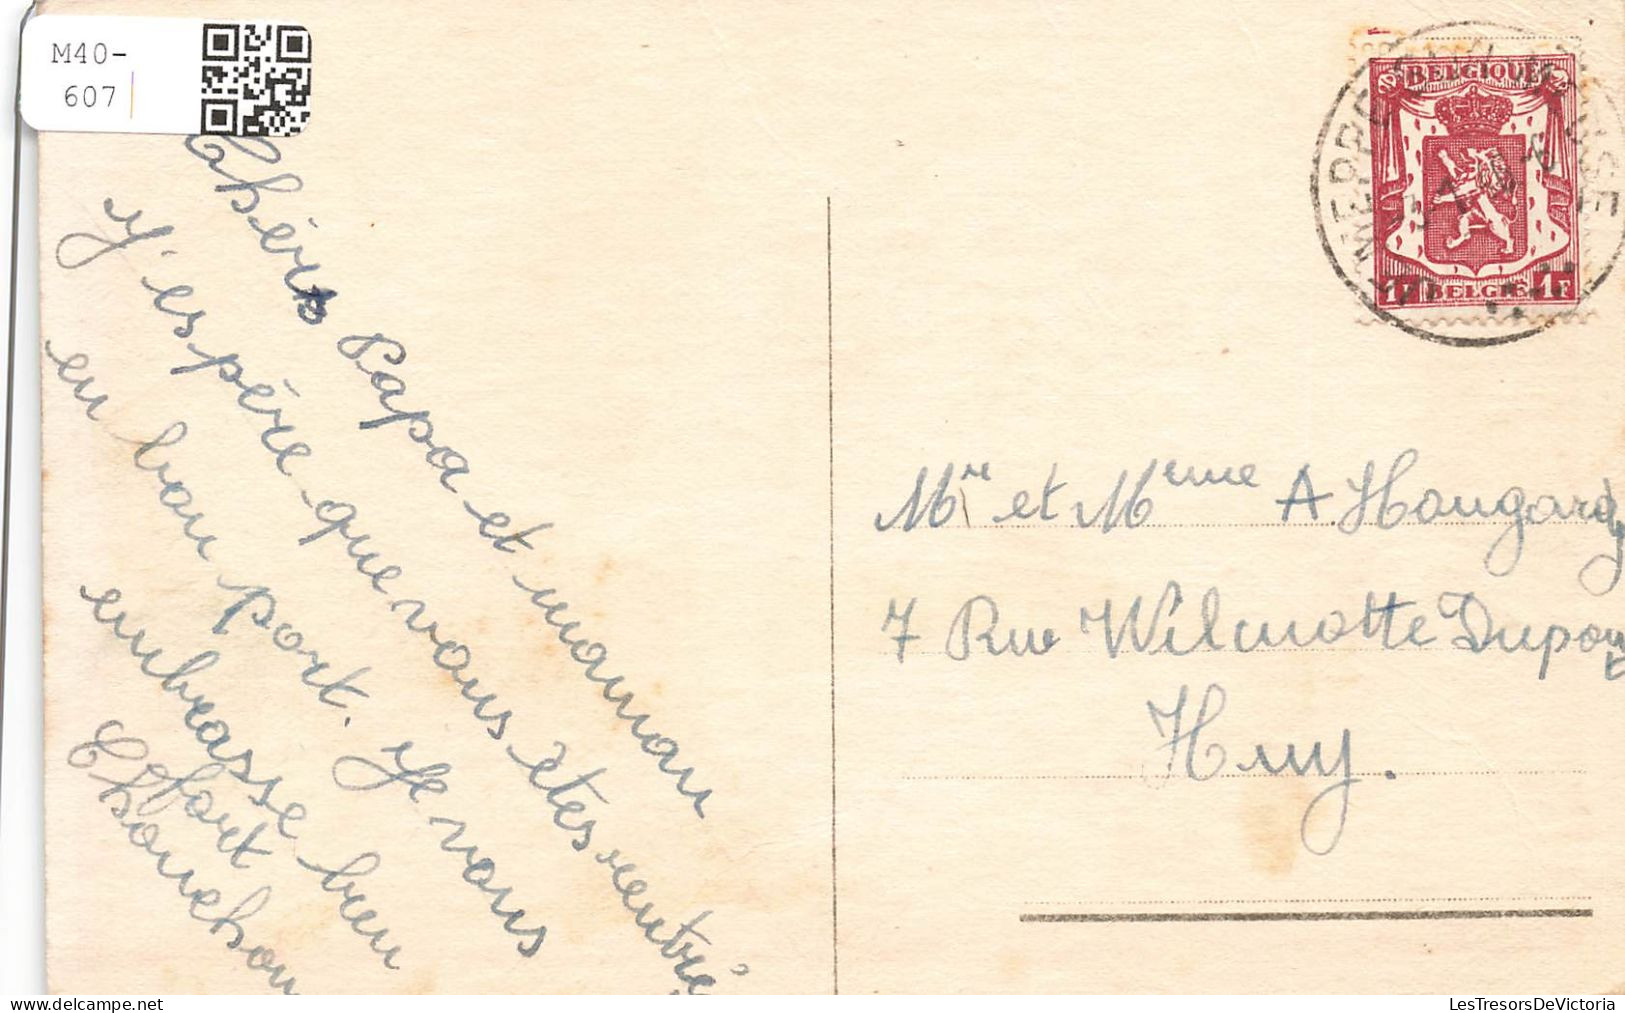 M40-
607
Chéris Papa et maman
J'espère que vous êtes rentré
en bon port. Je vous
embrasse bien
fort
Chouchou
BELGIQUE
1F BELGIE 1F
Mr et Mme A. Hougardy
7 Rue Wilmotte Dupont
Huy.
LesTresorsDeVictoria